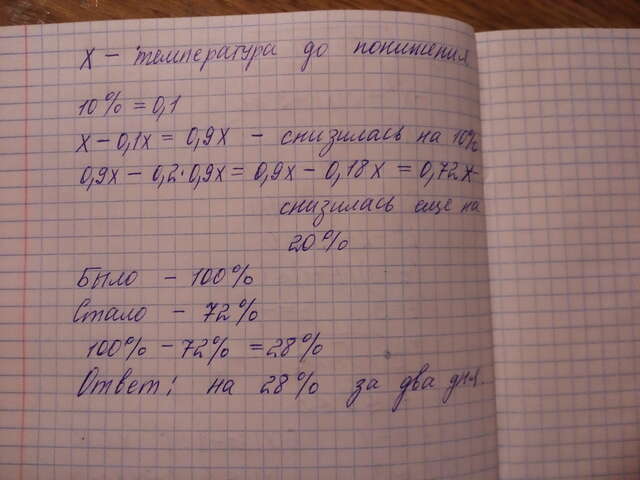 х - температура до понижения
10% = 0,1
х - 0,1х = 0,9х - снизилась на 10%
0,9х - 0,2·0,9х = 0,9х - 0,18х = 0,72х -
снизилась еще на
20%
Было - 100%
Стало - 72%
100% - 72% = 28%
Ответ: на 28% за два дня.